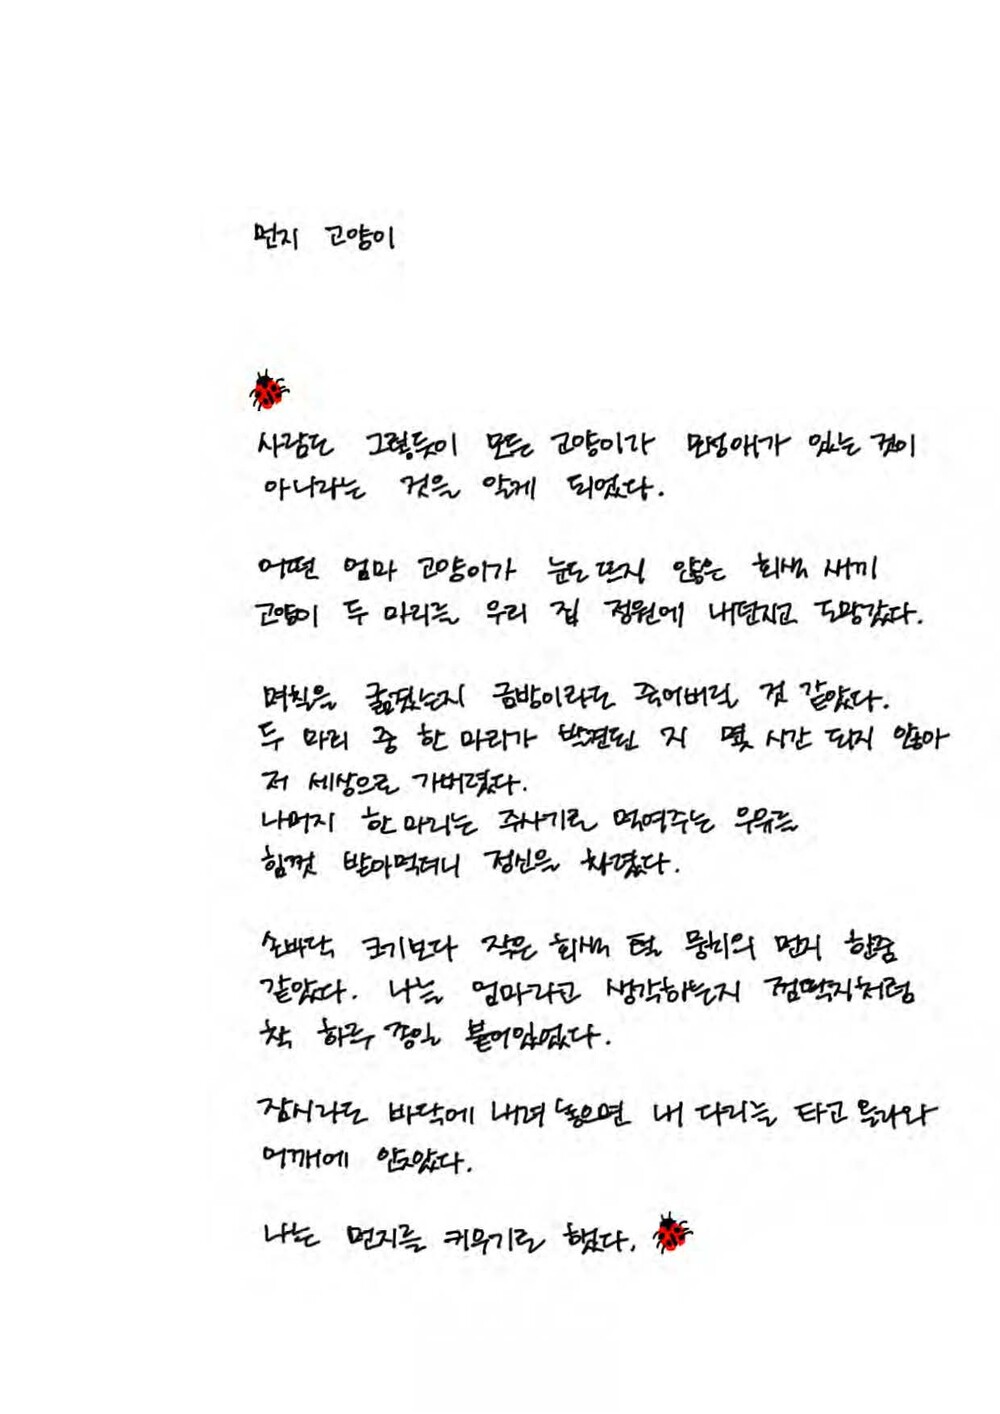 먼지 고양이
사람도 그렇듯이 모든 고양이가 모성애가 있는 것이
아니라는 것을 알게 되었다.
어떤 엄마 고양이가 눈도 뜨지 않은 회색 새끼
고양이 두 마리를 우리 집 정원에 내던지고 도망갔다.
며칠을 굶었는지 금방이라도 죽어버릴 것 같았다.
두 마리 중 한 마리가 발견된 지 몇 시간 되지 않아
저 세상으로 가버렸다.
나머지 한 마리는 주사기로 먹여주는 우유를
힘껏 받아먹더니 정신을 차렸다.
손바닥 크기보다 작은 회색 털 뭉치의 먼지 한줌
같았다. 나를 엄마라고 생각하는지 껌딱지처럼
착 하루 종일 붙어있었다.
잠시라도 바닥에 내려 놓으면 내 다리를 타고 올라와
어깨에 앉았다.
나는 먼지를 키우기로 했다.